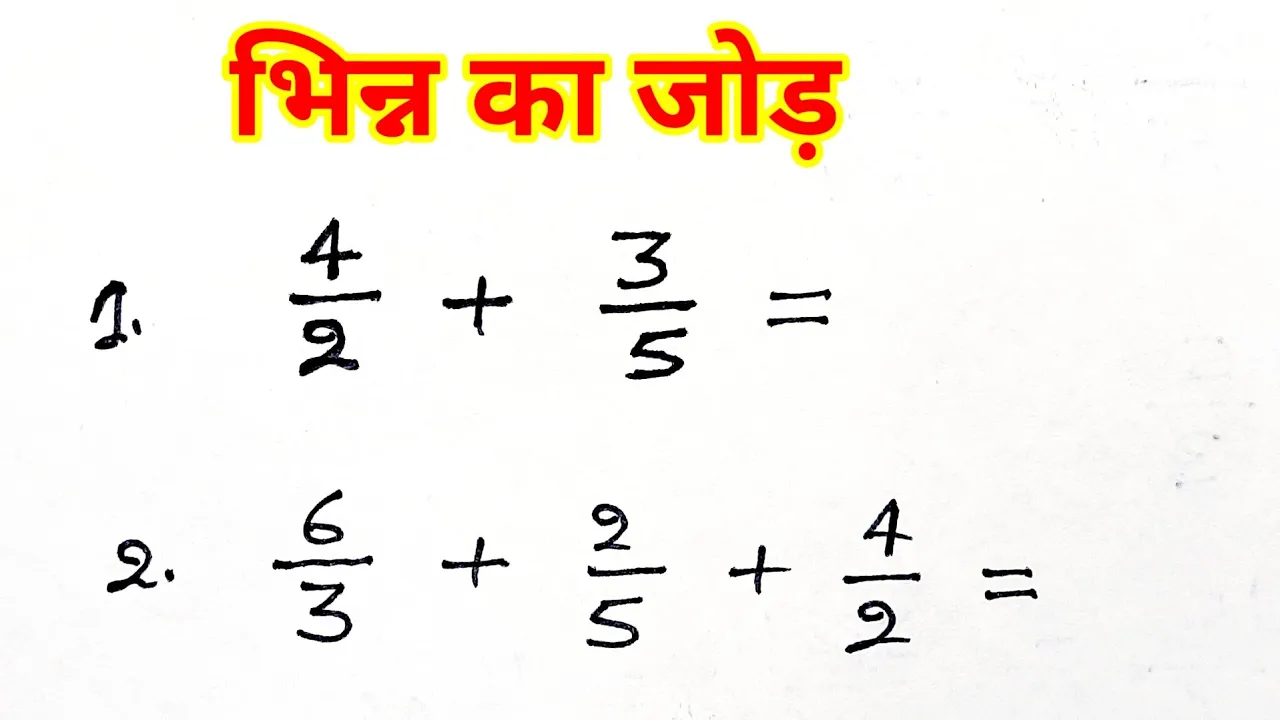 भिन्न का जोड़
1. 4/2 + 3/5 =
2. 6/3 + 2/5 + 4/2 =